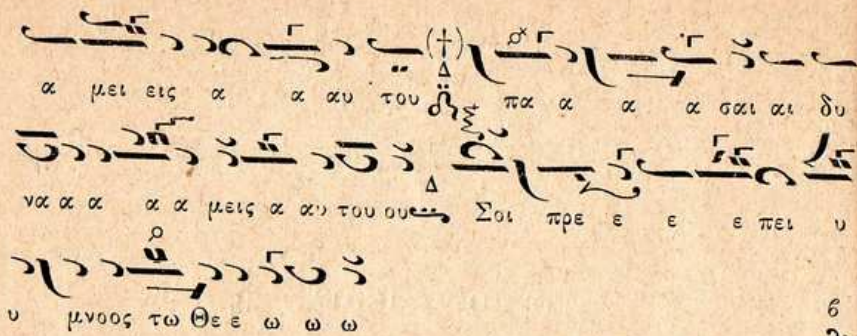 α μει εις α α αυ του πα α α α σαι αι δυ
να α α α α μεις α αυ του ου Σοι πρε ε ε ε πει υ
υ μνοος τω Θε ε ω ω ω